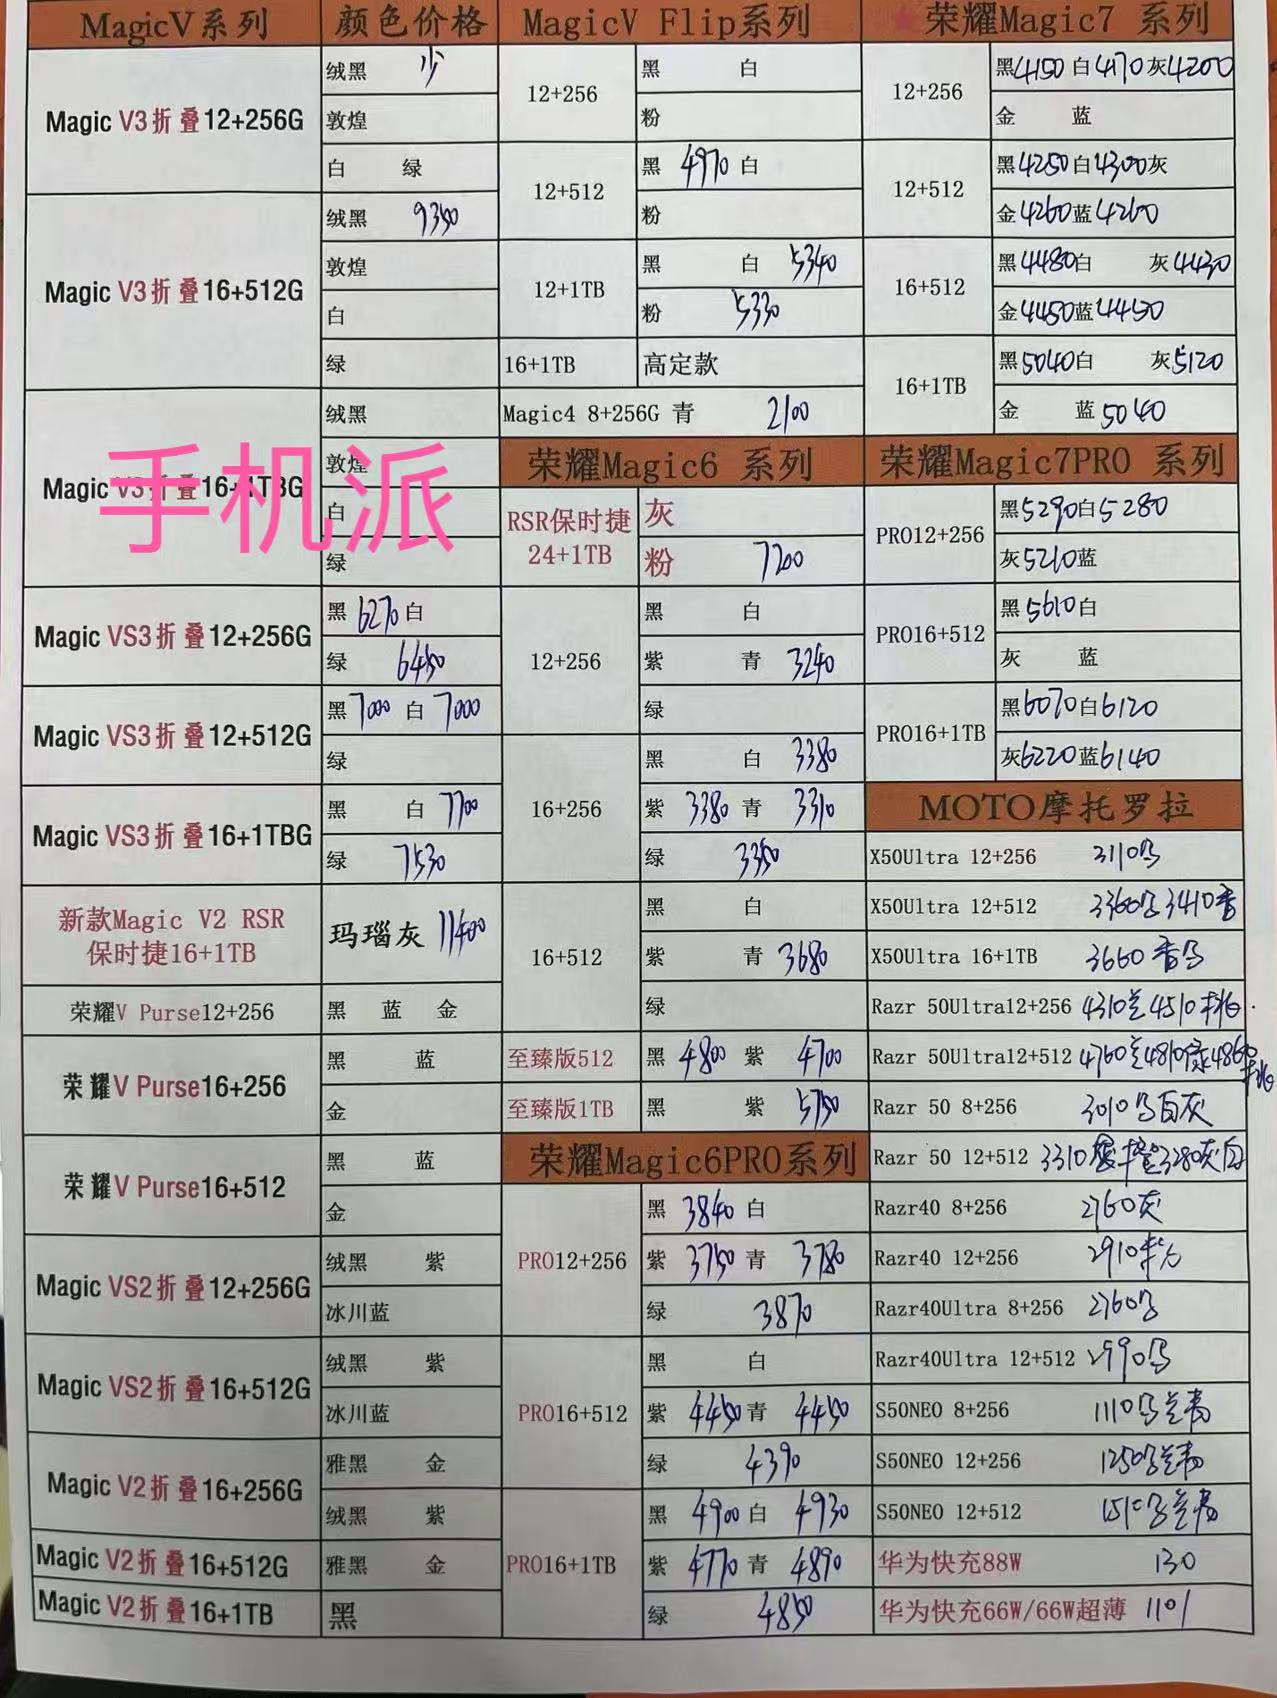 MagicV系列 颜色价格
Magic V3折叠12+256G
绒黑 少
敦煌
白 绿
Magic V3折叠16+512G
绒黑 9350
敦煌
白
绿
Magic V3折叠16+1TBG
绒黑
敦煌
白
绿
手机派
Magic VS3折叠12+256G
黑 6270 白
绿 6450
Magic VS3折叠12+512G
黑 7000 白 7000
绿
Magic VS3折叠16+1TBG
黑 白 7700
绿 7530
新款Magic V2 RSR
保时捷16+1TB
玛瑙灰 11400
荣耀V Purse12+256
黑 蓝 金
荣耀V Purse16+256
黑 蓝
金
荣耀V Purse16+512
黑 蓝
金
Magic VS2折叠12+256G
绒黑 紫
冰川蓝
Magic VS2折叠16+512G
绒黑 紫
冰川蓝
Magic V2折叠16+256G
雅黑 金
绒黑 紫
Magic V2折叠16+512G
雅黑 金
Magic V2折叠16+1TB
黑
MagicV Flip系列
12+256
黑 白
粉
12+512
黑 4970 白
粉
12+1TB
黑 白 5340
粉 5330
16+1TB 高定款
Magic4 8+256G 青 2100
荣耀Magic6 系列
RSR保时捷
24+1TB
灰
粉 7200
12+256
黑 白
紫 青 3240
绿
16+256
黑 白 3380
紫 3380 青 3310
绿 3350
16+512
黑 白
紫 青 3680
绿
至臻版512 黑 4800 紫 4700
至臻版1TB 黑 紫 5750
荣耀Magic6PRO系列
PRO12+256
黑 3840 白
紫 3750 青 3780
绿 3870
PRO16+512
黑 白
紫 4450 青 4450
绿 4390
PRO16+1TB
黑 4900 白 4930
紫 4770 青 4890
绿 4850
★荣耀Magic7 系列
12+256
黑4150 白4170 灰4200
金 蓝
12+512
黑4250白4300灰
金4260蓝4260
16+512
黑4480白 灰4430
金4450蓝4450
16+1TB
黑5040白 灰5120
金 蓝5040
荣耀Magic7PRO 系列
PRO12+256
黑5290白5280
灰5210蓝
PRO16+512
黑5610白
灰 蓝
PRO16+1TB
黑6070白6120
灰6220蓝6140
MOTO摩托罗拉
X50Ultra 12+256 3110
X50Ultra 12+512 3360 3410
X50Ultra 16+1TB 3660
Razr 50Ultra12+256 4310 4510
Razr 50Ultra12+512 4760 4810
Razr 50 8+256 3010 白灰
Razr 50 12+512 3310 3280灰白
Razr40 8+256 2760灰
Razr40 12+256 2910
Razr40Ultra 8+256 2760
Razr40Ultra 12+512 2990
S50NEO 8+256 1110
S50NEO 12+256 1250
S50NEO 12+512 1510
华为快充88W 130
华为快充66W/66W超薄 110/